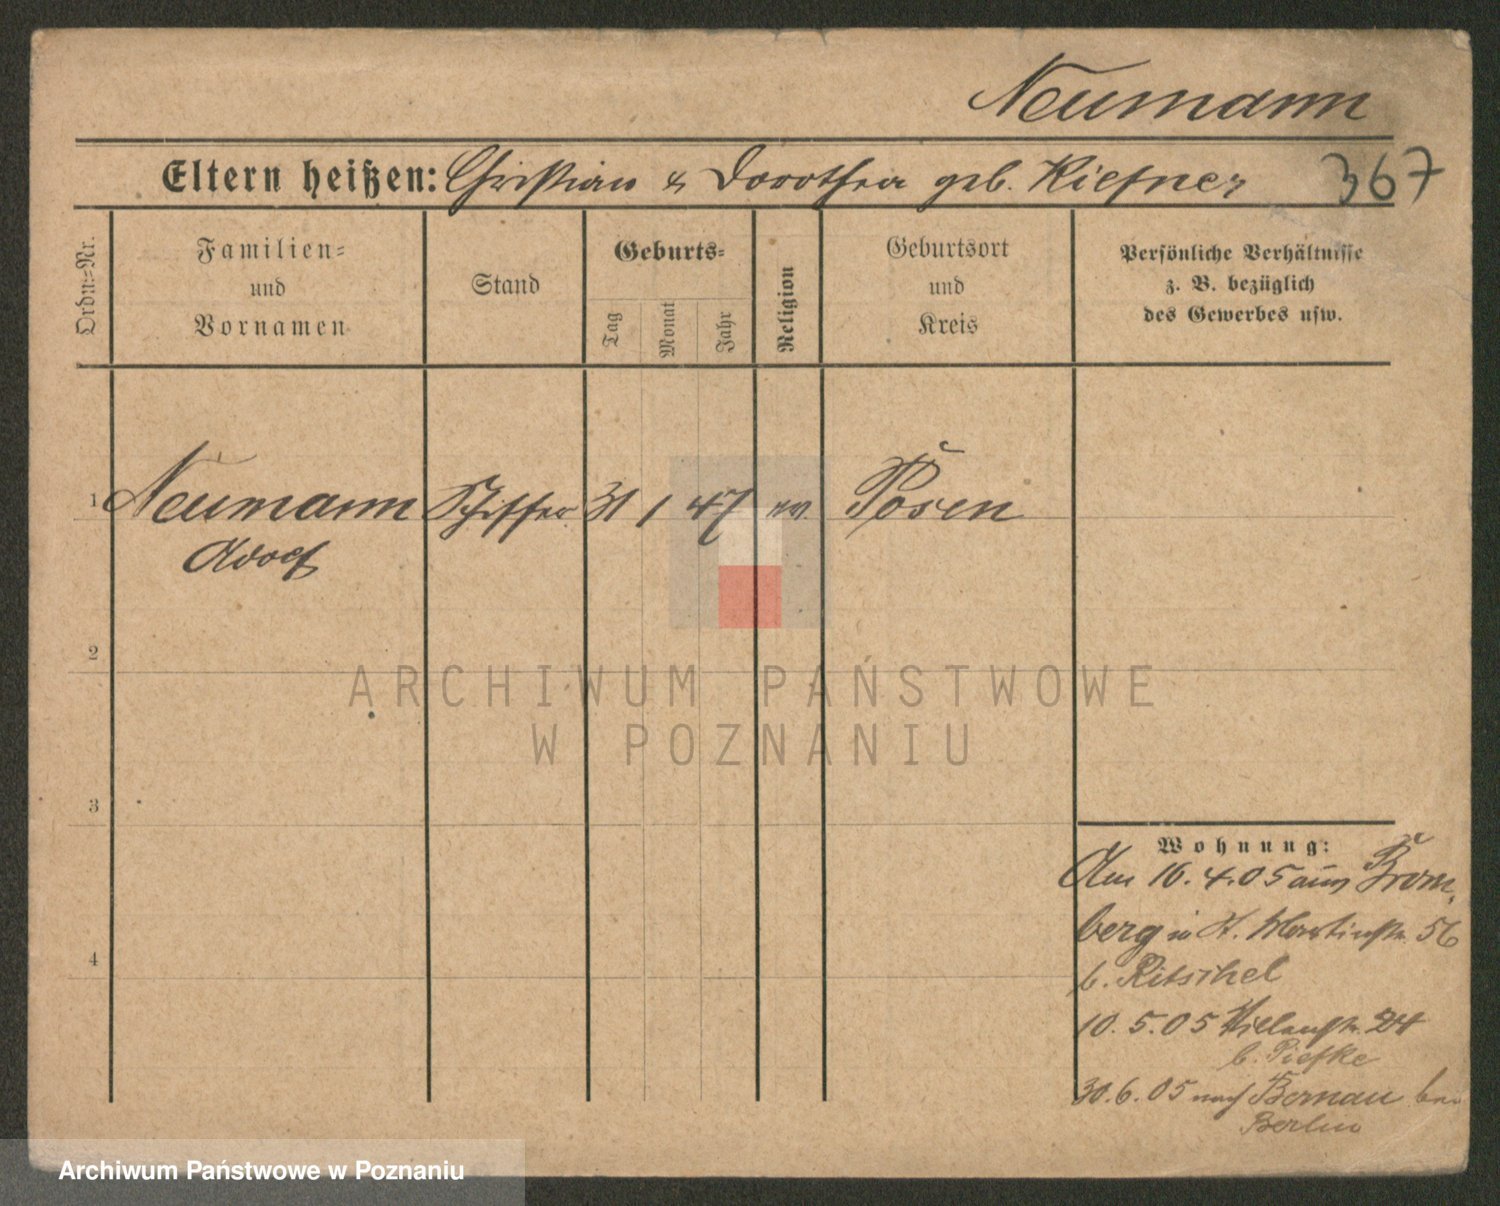 Neumann
Eltern heißen: Christian & Dorothea geb. Kiefner 367
Ordn=Nr.
Familien=
und
Vornamen
Stand
Geburts=
Tag
Monat
Jahr
Religion
Geburtsort
und
Kreis
Persönliche Verhältnisse
z. B. bezüglich
des Gewerbes usw.
1 Neumann Schiffer 31 1 47 ev. Posen
Adolf
2
ARCHIWUM PAŃSTWOWE
W POZNANIU
3
Wohnung:
Am 16.4.05 aus Brom
berg in St. Martinstr. 56
b. Ritschel
4
10.5.05 24
b. Piefke
30.6.05 nach Bernau bei
Berlin
Archiwum Państwowe w Poznaniu